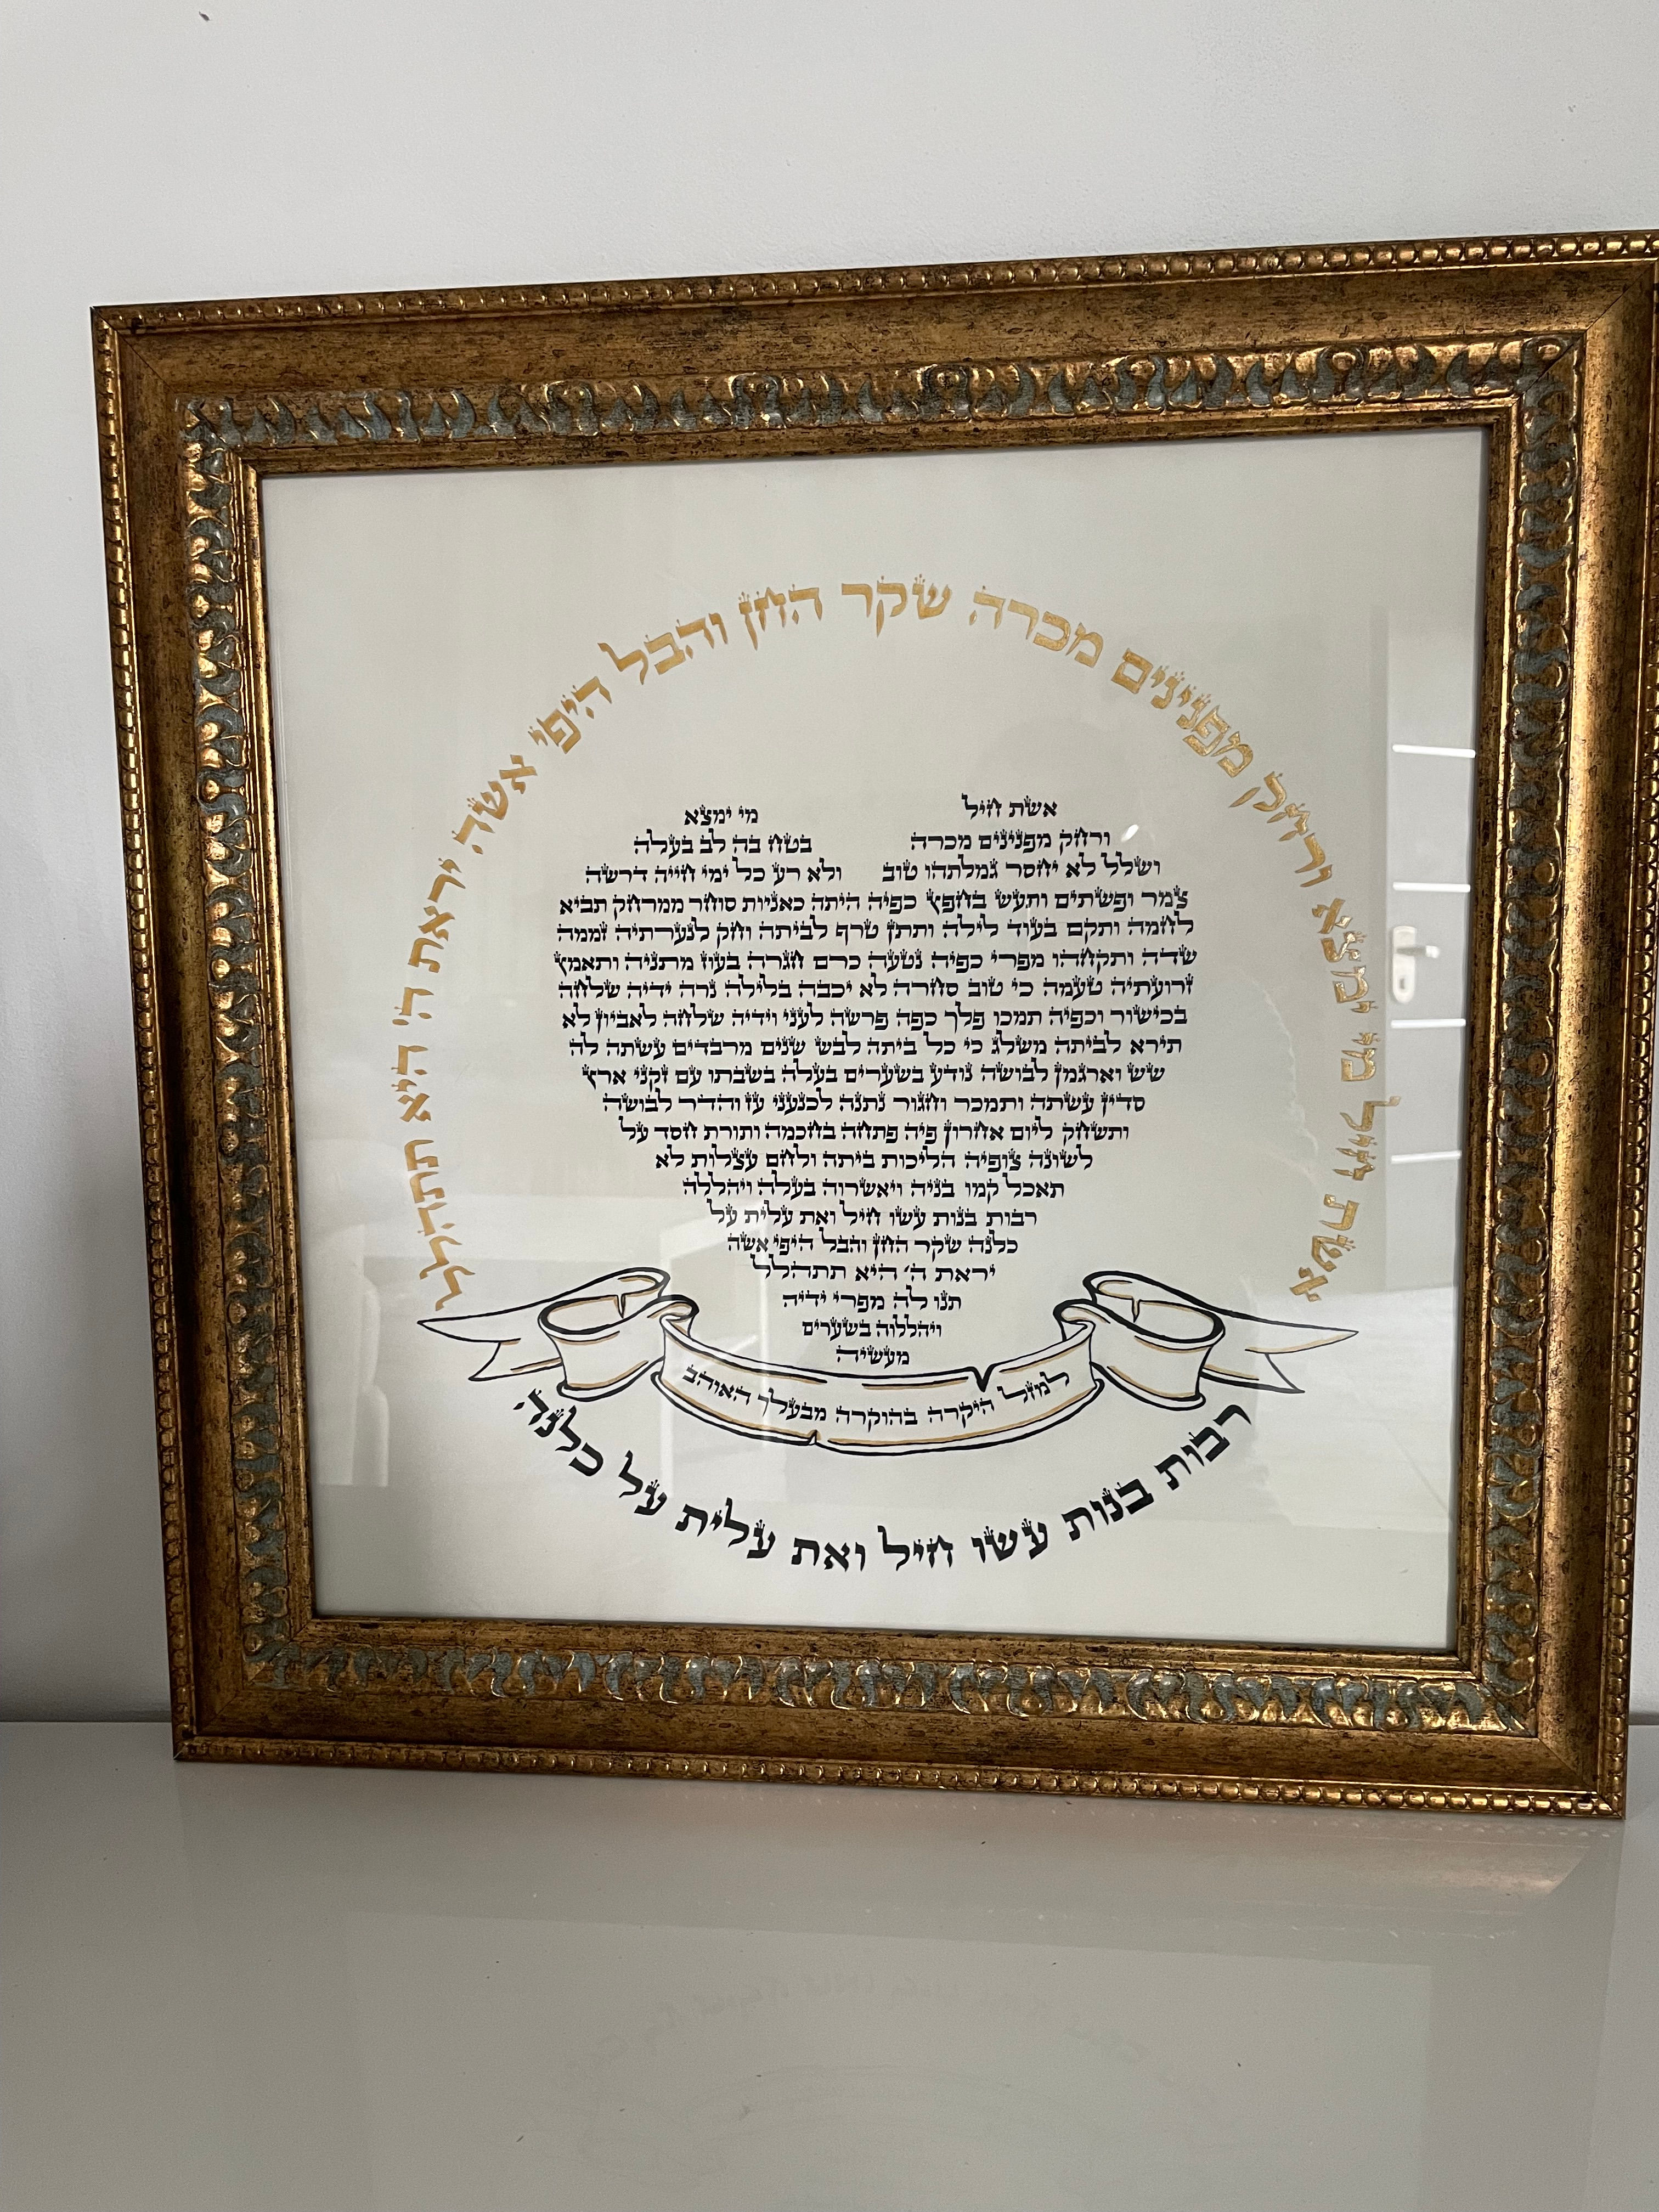 אשת חיל מי ימצא ורחק מפנינים מכרה שקר החן והבל היפי אשה יראת ה' היא תתהלל
אשת חיל מי ימצא
ורחק מפנינים מכרה בטח בה לב בעלה
ושלל לא יחסר גמלתהו טוב ולא רע כל ימי חייה דרשה
צמר ופשתים ותעש בחפץ כפיה היתה כאניות סוחר ממרחק תביא
לחמה ותקם בעוד לילה ותתן טרף לביתה וחק לנערתיה זממה
שדה ותקחהו מפרי כפיה נטעה כרם חגרה בעוז מתניה ותאמץ
זרועתיה טעמה כי טוב סחרה לא יכבה בלילה נרה ידיה שלחה
בכישור וכפיה תמכו פלך כפה פרשה לעני וידיה שלחה לאביון לא
תירא לביתה משלג כי כל ביתה לבש שנים מרבדים עשתה לה
שש וארגמן לבושה נודע בשערים בעלה בשבתו עם זקני ארץ
סדין עשתה ותמכר וחגור נתנה לכנעני עז והדר לבושה
ותשחק ליום אחרון פיה פתחה בחכמה ותורת חסד על
לשונה צופיה הליכות ביתה ולחם עצלות לא
תאכל קמו בניה ויאשרוה בעלה ויהללה
רבות בנות עשו חיל ואת עלית על
כלנה שקר החן והבל היפי אשה
יראת ה' היא תתהלל
תנו לה מפרי ידיה
ויהללוה בשערים
מעשיה
למזל היקרה בהוקרה מבעלך האוהב
רבות בנות עשו חיל ואת עלית על כלנה